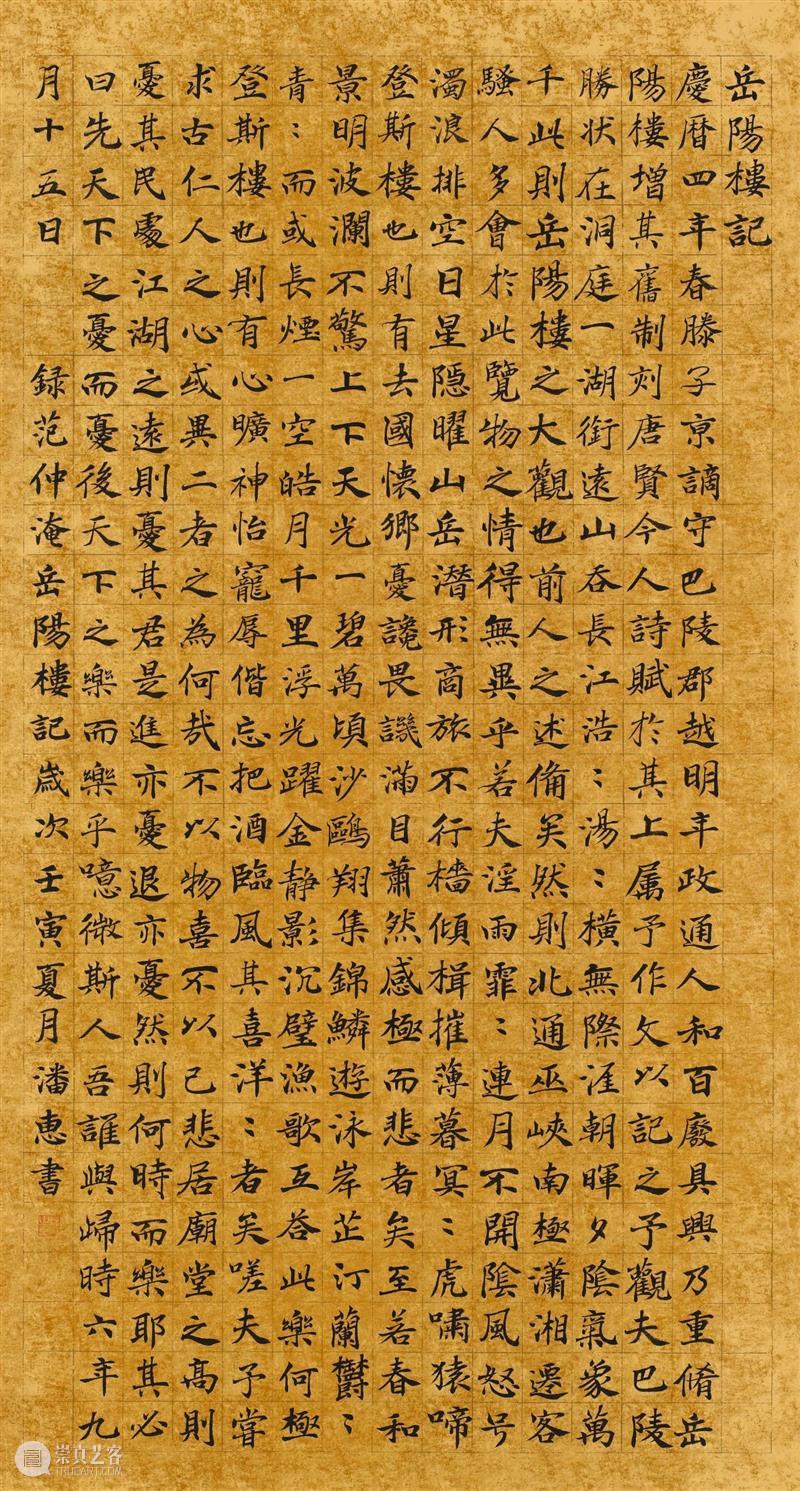 岳陽樓記
慶暦四年春滕子京謫守巴陵郡越明年政通人和百廢具興乃重脩岳
陽樓增其舊制刻唐賢今人詩賦於其上属予作文以記之予觀夫巴陵
勝状在洞庭一湖銜遠山吞長江浩:湯:橫無際涯朝暉夕陰氣象萬
千此則岳陽樓之大觀也前人之述俻矣然則北通巫峽南極瀟湘遷客
騷人多會於此覽物之情得無異乎若夫淫雨霏:連月不開陰風怒号
濁浪排空日星隱曜山岳潛形商旅不行檣傾楫摧薄暮冥:虎嘯猿啼
登斯樓也則有去國懷鄉憂讒畏譏滿目蕭然感極而悲者矣至若春和
景明波瀾不驚上下天光一碧萬頃沙鷗翔集錦鱗遊泳岸芷汀蘭欝:
青:而或長煙一空皓月千里浮光躍金静影沉璧漁歌互荅此樂何極
登斯樓也則有心曠神怡寵辱偕忘把酒臨風其喜洋:者矣嗟夫予嘗
求古仁人之心或異二者之為何哉不以物喜不以己悲居廟堂之高則
憂其民處江湖之遠則憂其君是進亦憂退亦憂然則何時而樂耶其必
曰先天下之憂而憂後天下之樂而樂乎噫微斯人吾誰與歸時六年九
月十五日 録范仲淹岳陽樓記歲次壬寅夏月潘惠書
崇真艺客
TRUEART.COM